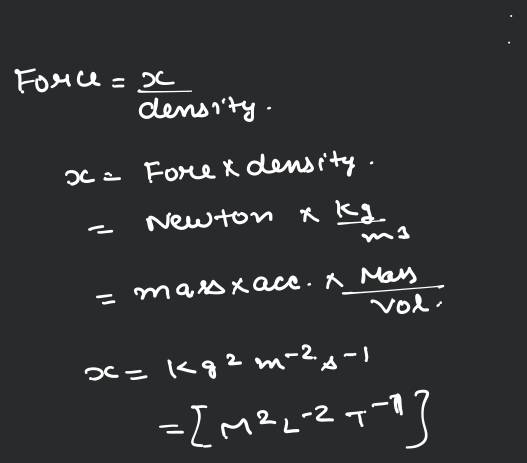 Force = x
density.
x = Fore x density.
= Newton x kg
m3
= mass x acc. x Mass
Vol.
x = kg2 m-2 s-1
= [M2L-2 T-1]